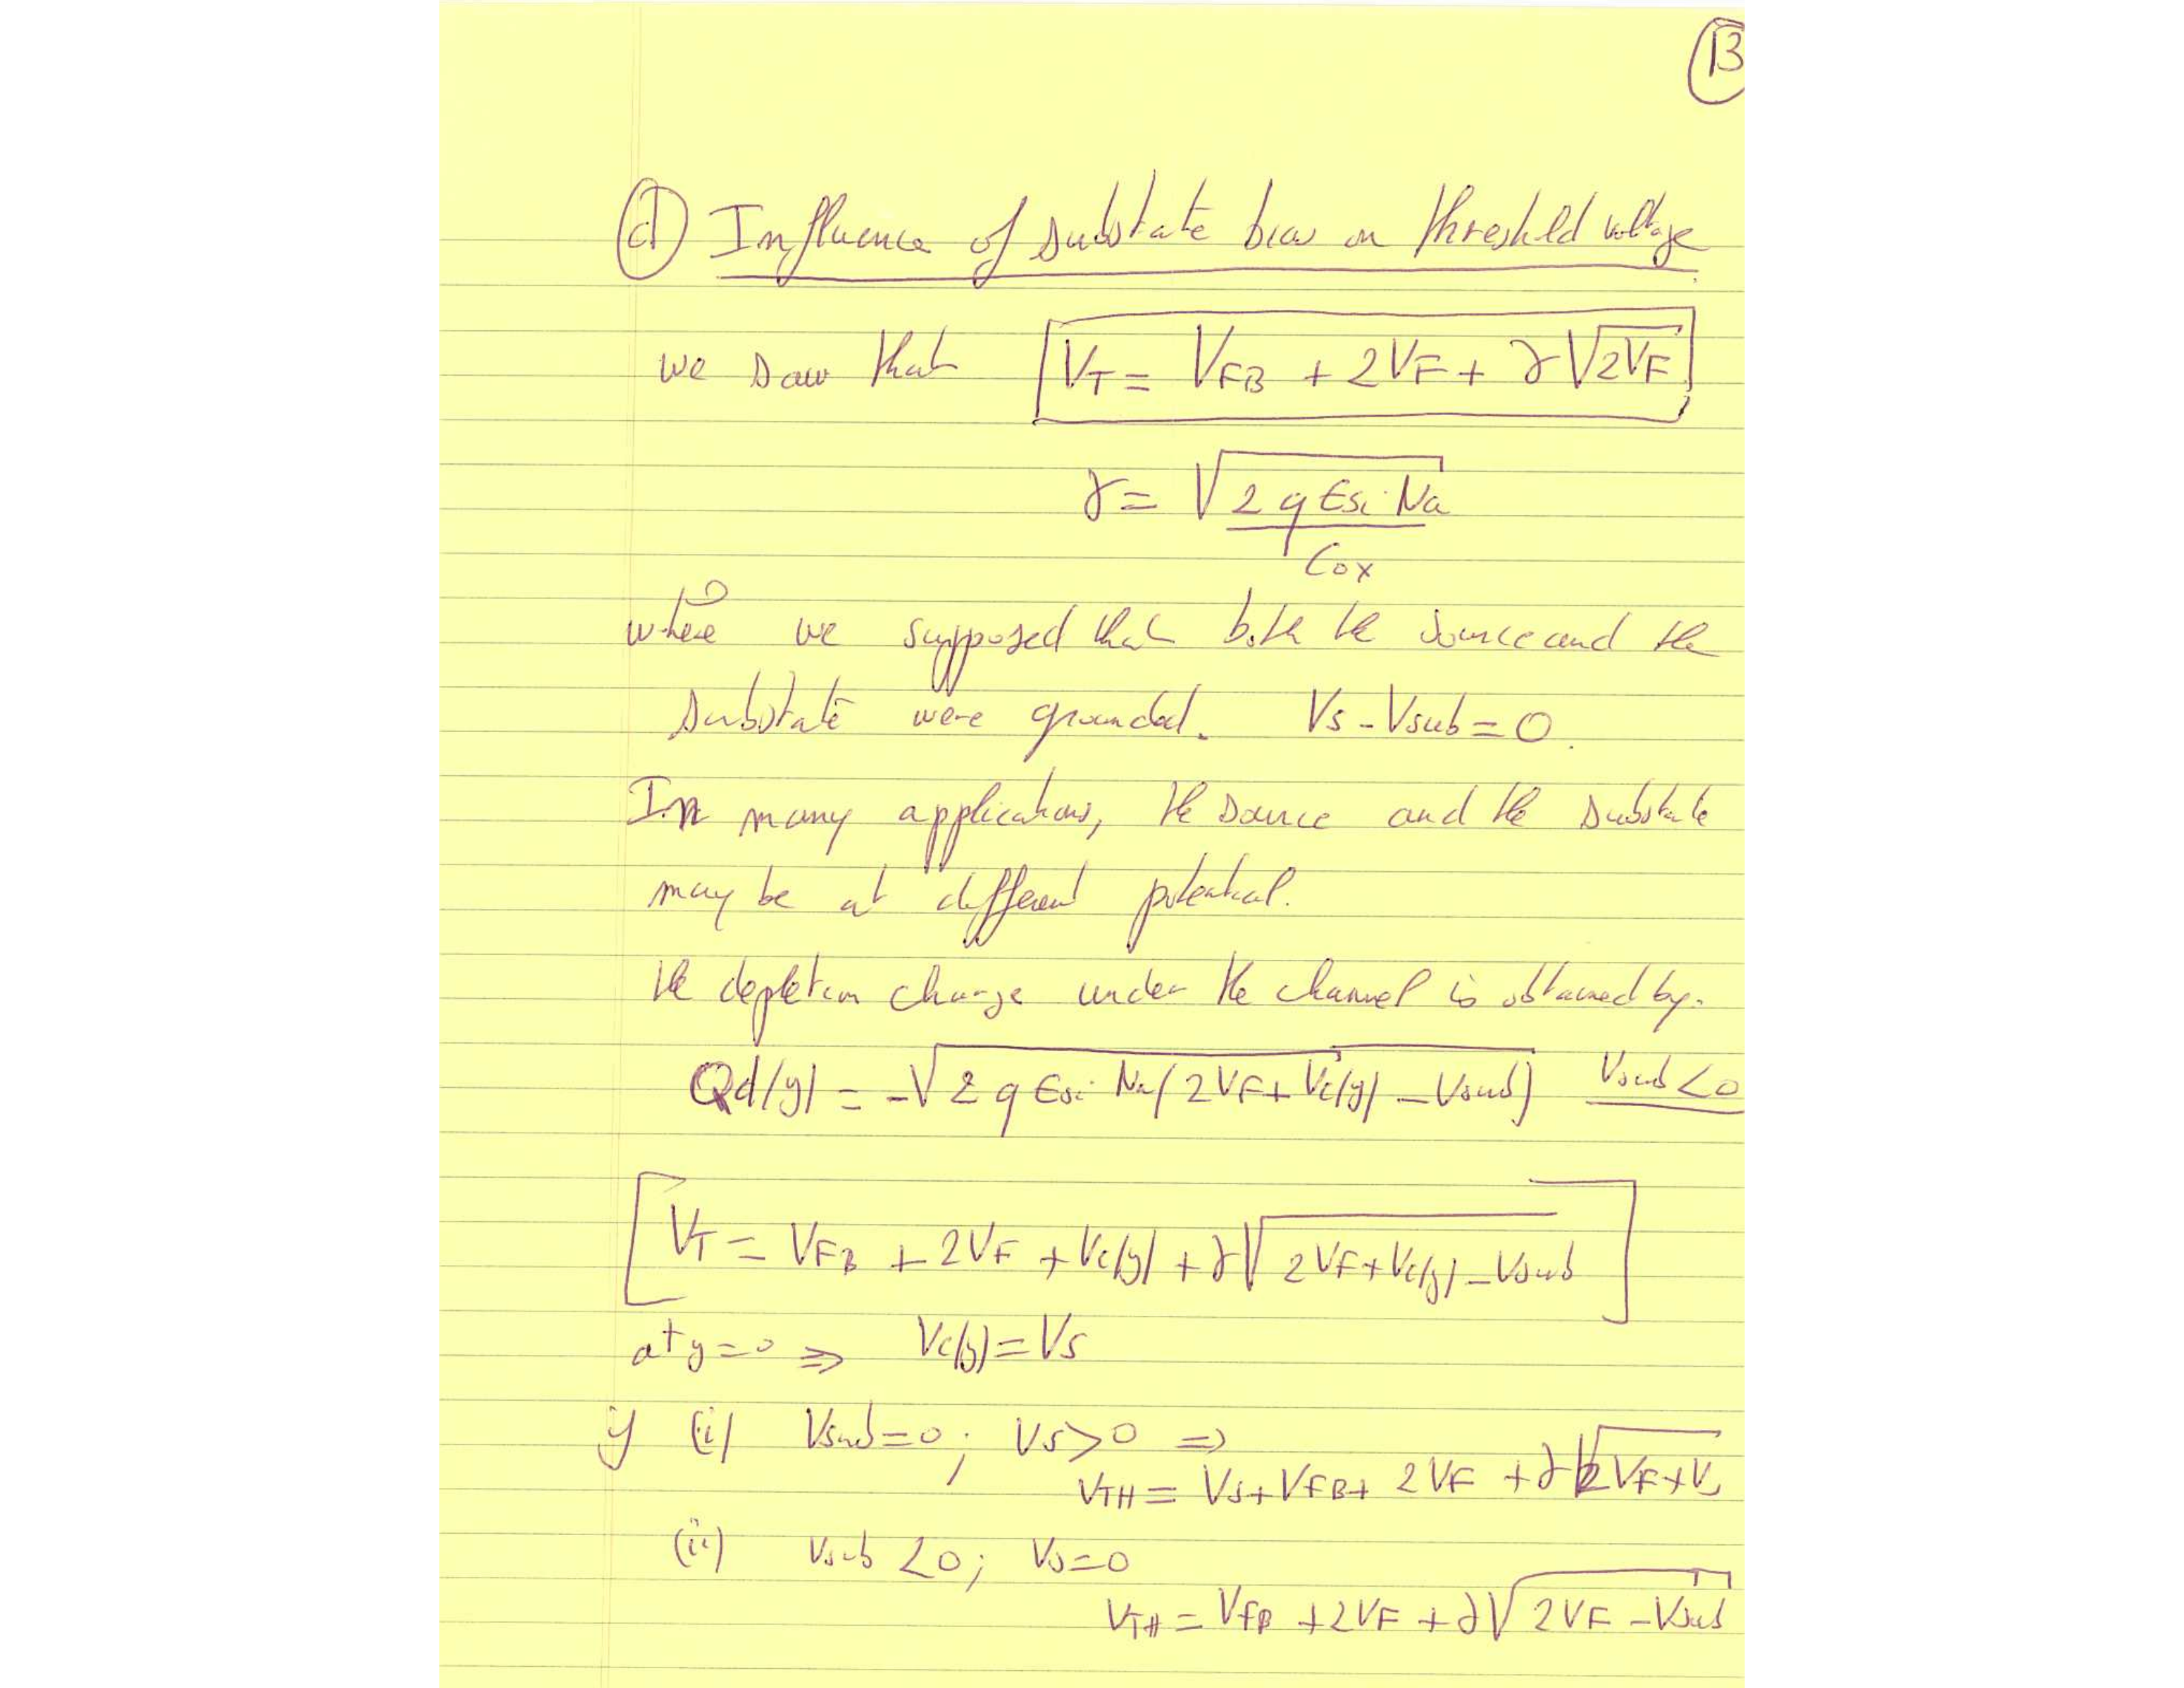 13
(d) Influence of substrate bias on threshold voltage
we saw that VT = VFB + 2VF + γ√2VF
γ = √2 q Esi Na
Cox
where we supposed that both the source and the
substrate were grounded. Vs - Vsub = 0.
In many applications, the source and the substrate
may be at different potential.
the depletion charge under the channel is obtained by.
Qd(y) = -√2 q Esi Na(2VF + Vc(y) - Vsub) Vsub < 0
VT = VFB + 2VF + Vc(y) + γ√2VF + Vc(y) - Vsub
at y = 0 ⇒ Vc(y) = Vs
if (i) Vsub = 0; Vs > 0 ⇒
VTH = Vs + VFB + 2VF + γ√2VF + Vs
(ii) Vsub < 0; Vs = 0
VTH = VFB + 2VF + γ√2VF - Vsub